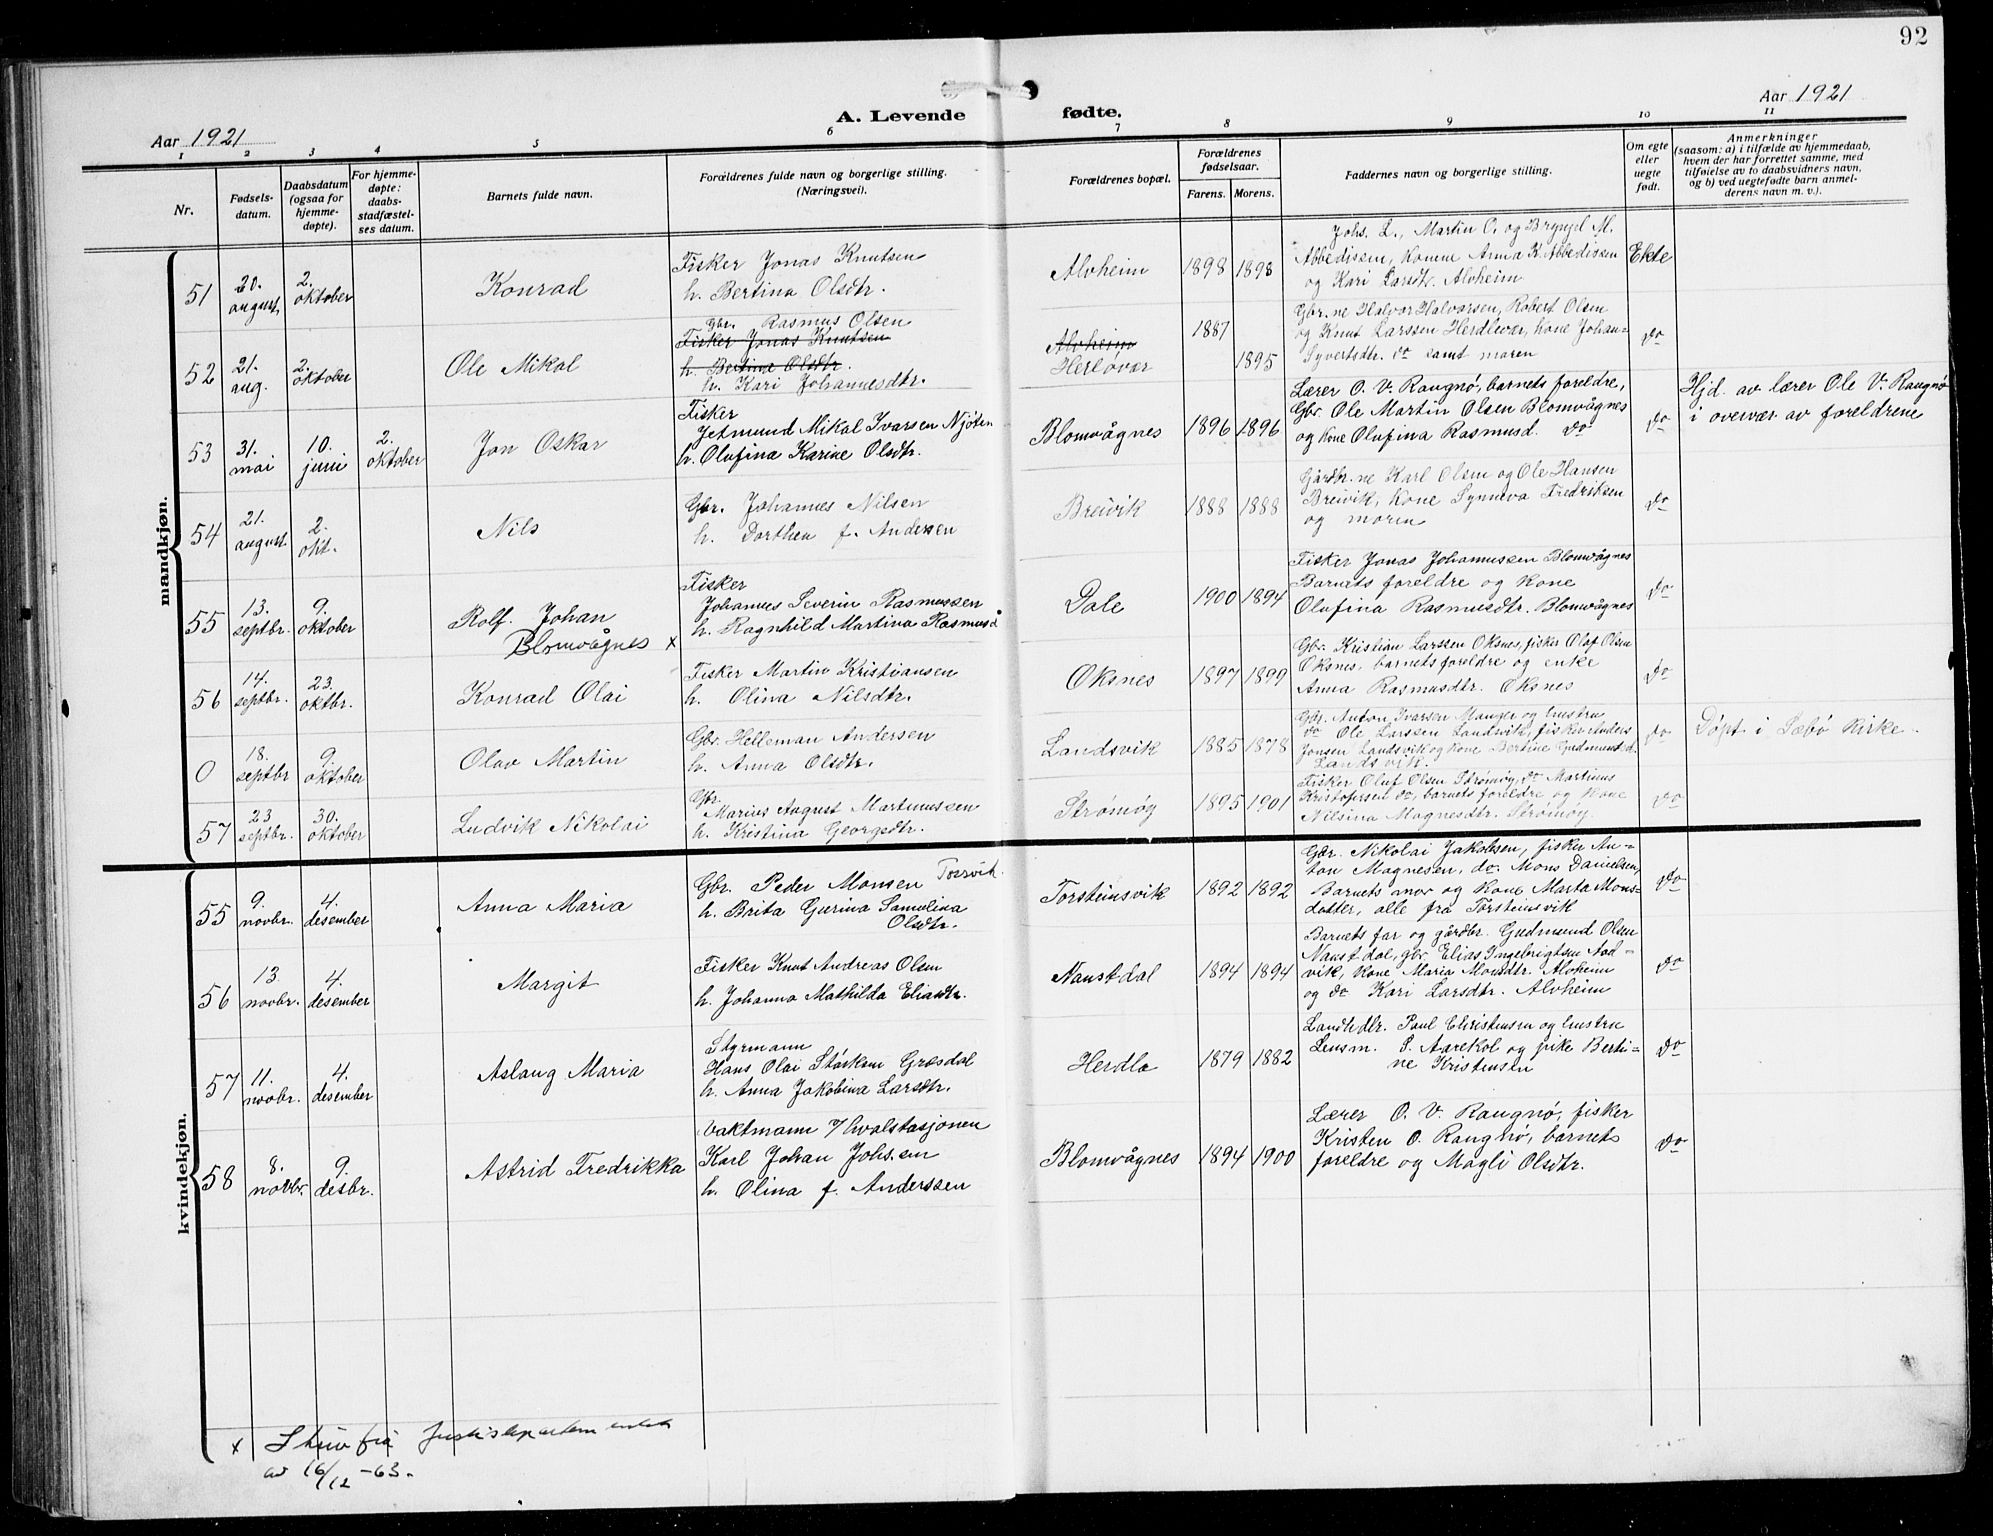 92
Aar 1921
A. Levende fødte.
Aar 1921
1 2 3 4 5 6 7 8 9 10 11
Nr.
Fødsels-
datum.
Daabsdatum
(ogsaa for
hjemme-
døpte).
For hjemme-
døpte:
daabs-
stadfæstel-
ses datum.
Barnets fulde navn.
Forældrenes fulde navn og borgerlige stilling.
(Næringsvei).
Forældrenes bopæl.
Forældrenes
fødselsaar.
Farens. Morens.
Faddernes navn og borgerlige stilling.
Om egte
eller
uegte
født.
Anmerkninger
(saasom: a) i tilfælde av hjemmedaab,
hvem der har forrettet samme, med
tilføielse av to daabsvidners navn,
og b) ved uegtefødte barn anmel-
derens navn m. v.).
mandkjøn.
51
20.
august
2.
oktober
Konrad
Fisker Jonas Knutsen
h. Bertina Olsdtr.
Alvheim
1898 1898
Johs. L., Martin O. og Brynjel M.
Abbedissen, Konene Anna K. Abbedissen
og Kari Larsdtr. Alvheim
Ekte
52
21.
aug.
2.
oktober
Ole Mikal
Gbr. Rasmus Olsen
Fisker Jonas Knutsen
h. Bertina Olsdtr.
h. Kari Johannesdtr.
Alvheim
Herløvær
1887
1895
Gbr.ne Halvor Halvorsen, Robert Olsen
og Knut Larssen Herdlevær, kone Johan-
Syvertsdtr. do samt moren
do
53
31.
mai
10.
juni
2.
oktober
Jon Oskar
Fisker
Jetmund Mikal Ivarsen Njøten
h. Olufina Karine Olsdtr.
Blomvågnes
1896 1896
Lærer O. V. Raugnø, barnets foreldre,
Gbr. Ole Martin Olsen Blomvågnes
og kone Olufina Rasmusd. do
do
Hjd. av lærer Ole V. Raugnø
i overvær av foreldrene
54
21.
august
2.
okt.
Nils
Gbr. Johannes Nilsen
h. Dorthea f. Andersen
Breivik
1888 1888
Gårdbr.ne Karl Olsen og Ole Hansen
Breivik, kone Synneva Fredriksen
og moren
do
55
13.
septbr.
9.
oktober
Rolf Johan
Blomvågnes x
Fisker
Johannes Severin Rasmussen
h. Ragnhild Martina Rasmusd
Dale
1900 1894
Fisker Jonas Johannussen Blomvågnes
Barnets foreldre og kone
Olufina Rasmusdtr. Blomvågnes
do
56
14.
septbr.
23.
oktbr.
Konrad Olai
Fisker Martin Kristiansen
h. Olina Nilsdtr.
Oksnes
1897 1899
Gbr. Kristian Larssen Oksnes, fisker Olaf Olsen
Oksnes, barnets foreldre og enke
Anna Rasmusdtr. Oksnes
do
0
18.
septbr
9.
oktober
Olav Martin
Gbr. Helleman Andersen
h. Anna Olsdtr.
Landsvik
1885 1878
Gbr. Anton Ivarsen Manger og hustru
do Ole Larssen Landsvik, fisker Anders
Jonsen Landsvik og kone Bertine Gudmunsd.
Landsvik.
do
Døpt i Sæbø Kirke.
57
23
septbr.
30.
oktober
Ludvik Nikolai
Gbr
Marius August Martinussen
h. Kristina Georgsdtr.
Strømøy
1895 1901
Fisker Oluf Olsen Strømøy, do Martinus
Kristofersen do, barnets foreldre og kone
Nilsina Magnesdtr. Strømøy.
do
kvindekjøn.
55
9.
novbr.
4.
desember
Anna Maria
Gbr. Peder Monsen Torsvik.
h. Brita Gurina Samolina
Olsdtr.
Torsteinsvik
1892 1892
Gbr. Nikolai Jakobsen, fisker An-
ton Magnesen, do. Mons Danielsen,
Barnets mor og kone Marta Mons-
datter, alle frå Torsteinsvik
do
56
13.
novbr.
4.
desember
Margit
Fisker Knut Andreas Olsen
h. Johanna Mathilda Eliasdtr.
Naustdal
1894 1894
Barnets far og gårdbr. Gudmund Olsen
Naustdal, gbr Elias Ingebrigtsen Aad-
vik, kone Maria Monsdtr. Alvheim
og do Kari Larsdtr. Alvheim
do
57
11.
novbr.
4.
desember
Aslaug Maria
Styrmann
Hans Olai Størksen Græsdal
h. Anna Jakobina Larsdtr.
Herdla
1879 1882
Landhdlr. Paul Christensen og hustru
Lensm. S. Aarekol og pike Berti-
ne Kristensen
do
58
8.
novbr.
9.
desbr.
Astrid Fredrikka
Vaktmann v/ hvalstasjonen
Karl Johan Johs.en
h. Olina f. Anderssen
Blomvågnes
1894 1900
Lærer O. V. Raugnø, fisker
Kristen O. Raugnø, barnets
foreldre og Magli Olsdtr.
do
x Skriv frå Justisdepartementet
av 16/12-63.